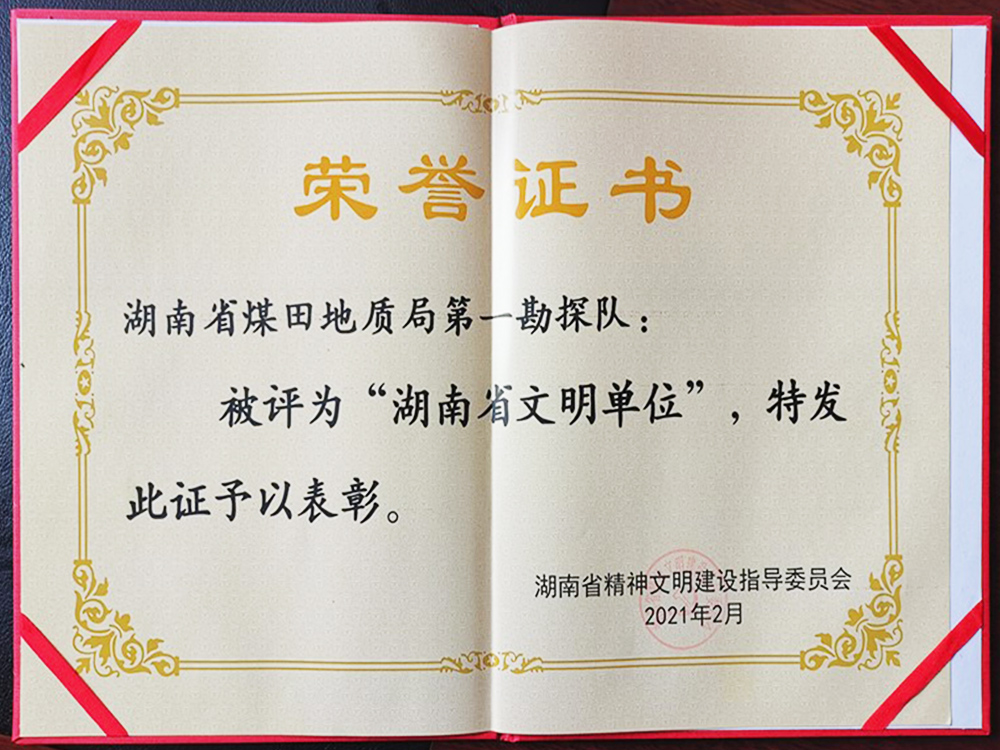 荣誉证书
湖南省煤田地质局第一勘探队：
被评为“湖南省文明单位”，特发
此证予以表彰。
湖南省精神文明建设指导委员会
2021年2月